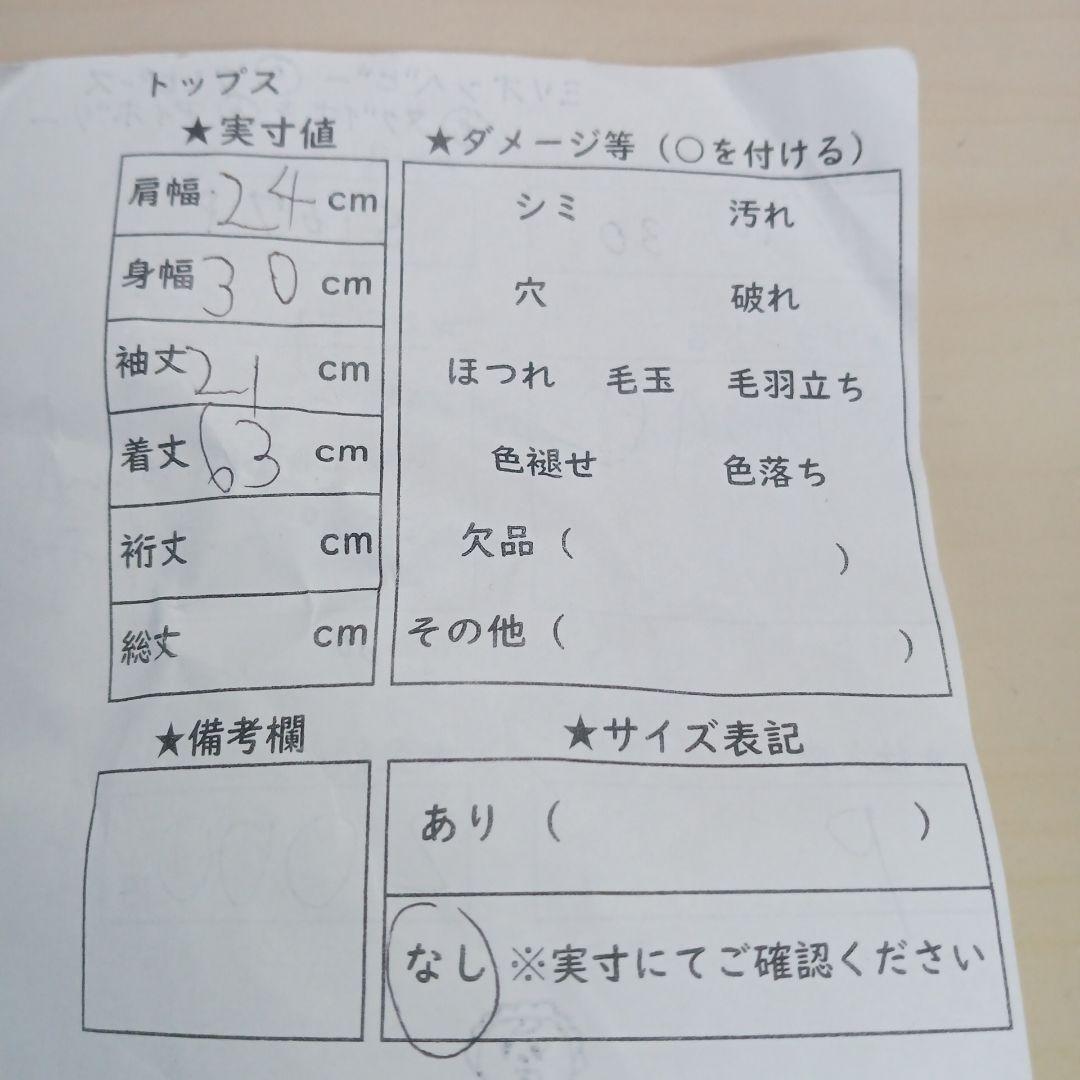 トップス
★実寸値
肩幅 24 cm
身幅 30 cm
袖丈 21 cm
着丈 63 cm
裄丈 cm
総丈 cm
★ダメージ等（○を付ける）
シミ 汚れ
穴 破れ
ほつれ 毛玉 毛羽立ち
色褪せ 色落ち
欠品（ ）
その他（ ）
★備考欄
★サイズ表記
あり（ ）
なし ※実寸にてご確認ください